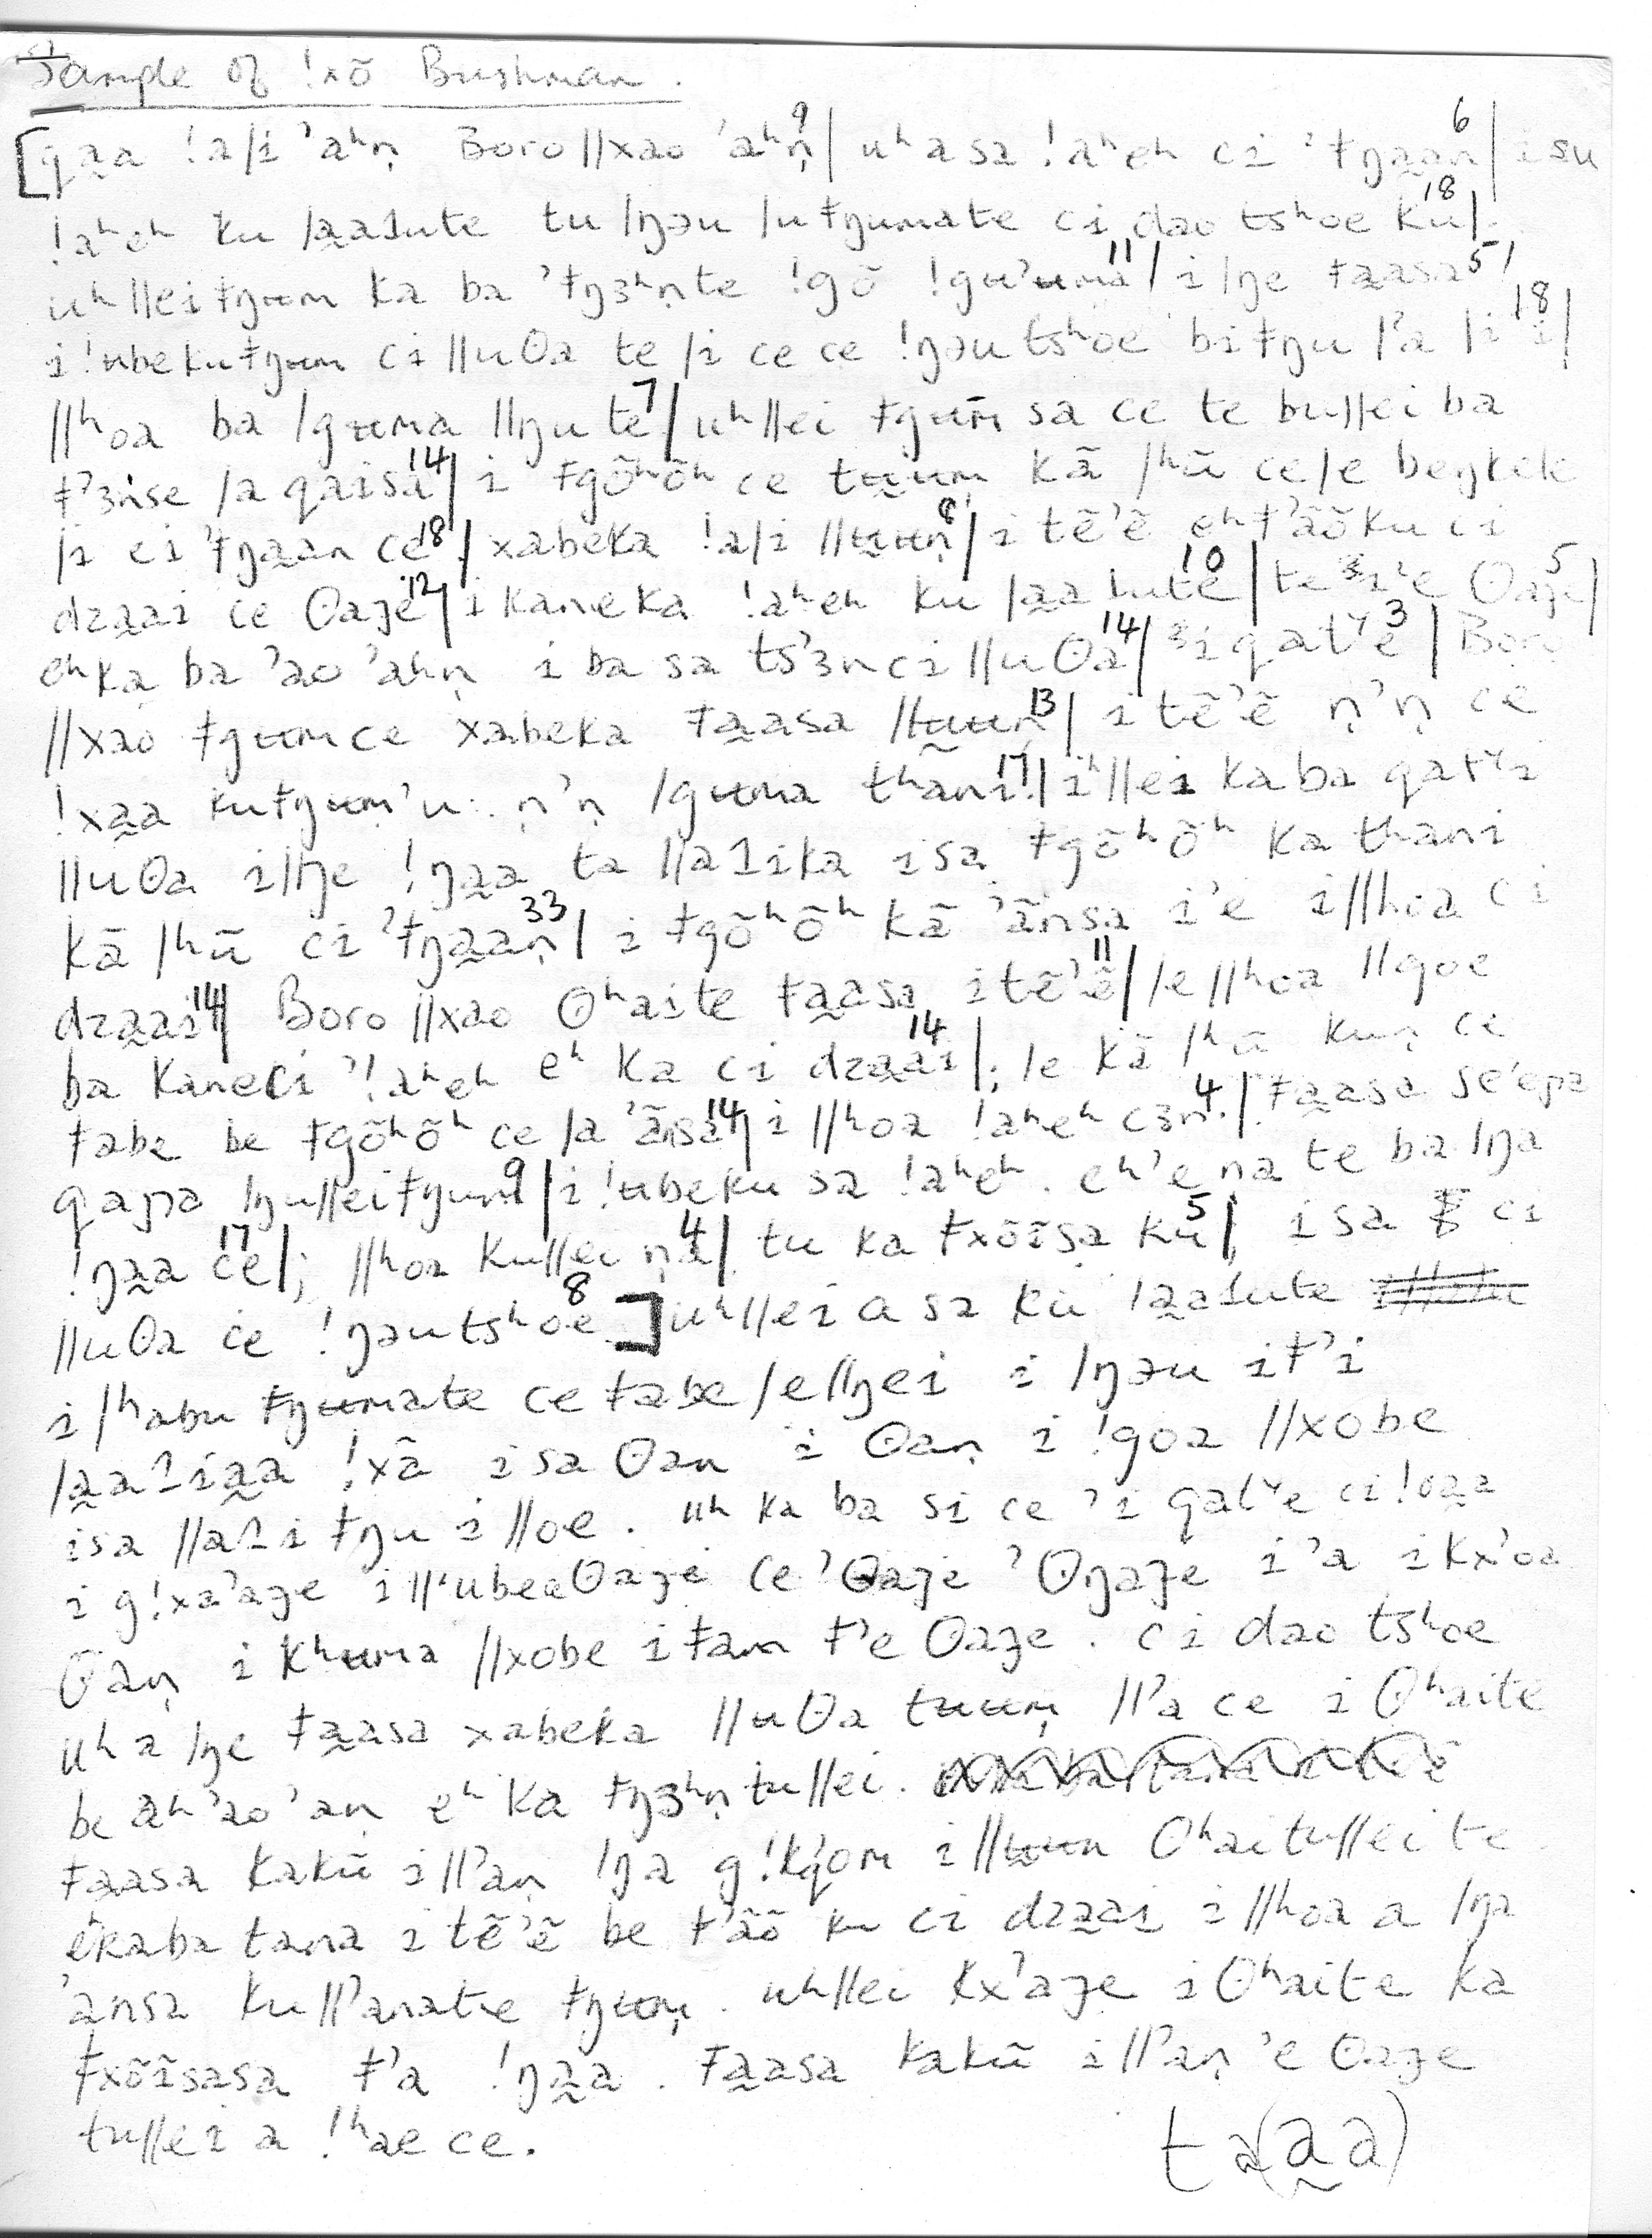 Sample of !xõ Bushman.
[qa̰a !a/i 'aʰṇ Boro//xao 'aʰṇ⁹| uʰ a sa !aʰeʰ ci 'ǂŋa̰aṇ⁶| i su
!aʰeʰ ku /a̰a1ute tu /ŋəu /u ǂŋumate ci dao tsʰoe ku¹⁸|
uʰ//eiǂŋʉm ka ba 'ǂŋɜʰṇte !gõ !gʉ'ʉma¹¹| i/ŋe ǂa̰asa⁵|
i !ʉbekuǂŋʉm ci //uʘa te /i ce ce !ŋəutsʰoe biǂŋu /'a /i i¹⁸|
//ʰoa ba /gʉma //ŋu te⁷| uʰ//ei ǂgʉm̄ sa ce te bu//ei ba
ǂ'ɜnse /a qaisa¹⁴| i ǂgõʰõʰ ce tʉ̰ʉm̩ kã /ʰũ ce/e beŋkele
/i ei 'ǂŋa̰an ce¹⁸| xabeka !a/i //ʉ̰ʉṇ⁸| i tẽ'ẽ eʰǂ'ãõku ci
dza̰ai ce ʘaɟe¹²| i kaneka !aʰeʰ ku /a̰a1ute¹⁰| te 'i'e ʘaɟe⁵|
eʰka ba 'ao 'aʰṇ i ba sa ts'ɜn ci //uʘa¹⁴| 'i qatʸe³| Boro
//xao ǂgʉmce xabeka ǂa̰asa //ʉ̰ʉṇ¹³| i tẽ'ẽ ṇ'ṇ ce
!xa̰a kuǂŋʉm̩'u: ṇ'ṇ /gʉma tʰani¹⁷| iʰ//ei ka ba qatʸi
//uʘa i//ŋe !ŋa̰a ta //a1ika isa ǂgõʰõʰ ka thani
kã /ʰũ ci 'ǂŋa̰aṇ³³| i ǂgõʰõʰ kã 'ãnsa i'e i//hoa ci
dza̰ai¹⁴| Boro//xao ʘʰaite ǂa̰asa itẽ'ẽ¹¹| /e //ʰoa //goe
ba kaneci '!aʰeʰ eʰ ka ci dza̰ai¹⁴|; /e kã /ʰũ kuṇ ce
ǂabe be ǂgõʰõʰ ce /a 'ãnsa¹⁴| i //ʰoa !aʰeʰ cɜn⁴| ǂa̰asa se'epa
qaɲa /ŋu//eiǂŋum⁹| i !ʉbeku sa !aʰeʰ. eʰ'e na te ba /ŋa
!ŋa̰a ce¹⁷|; //ʰoa ku//ei ṇa⁴| tu ka ǂxõĩsa ku⁵|; i sa ci
//uʘa ce !ŋəutsʰoe⁸] uʰ//ei a sa ku /a̰a1ute
i /ʰabu ǂŋʉmate ce ǂabe /e//ŋei i /ŋəu i ǂ'i
/a̰a1ia̰a !xã isa ʘan i ʘaṇ i !goa //xobe
isa //a1i ǂŋu i //oe. uʰ ka ba si ce 'i qatʸe ci !oa̰a
i g!xa'aɟe i //'ubeeʘaɟe ce 'ʘaɟe 'ʘŋaɟe i'a i kx'oa
ʘaṇ i kʰʉma //xobe i ǂam ǂ'e ʘaɟe. ci dao tsʰoe
uʰ a /ŋe ǂa̰asa xabeka //uʘa tʉʉm̩ //'a ce i ʘʰaite
be aʰ'ao'aṇ eʰ ka ǂŋɜʰṇ tu//ei.
ǂa̰asa kakũ i //'aṇ /ŋa g!kq'om i //ʉ̰ʉn ʘʰaitu//ei te
eʰkaba tana i tẽ'ẽ be ǂ'ãõ ku ci dza̰ai i //hoa a /ŋa
'ansa ku//'anate ǂŋʉm̩. uʰ//ei kx'aɟe i ʘʰaite ka
ǂxõĩsasa ǂ'a !ŋa̰a. ǂa̰asa kakũ i //'aṇ'e ʘaɟe
tu//ei a !ʰae ce.
ta(a̰a)